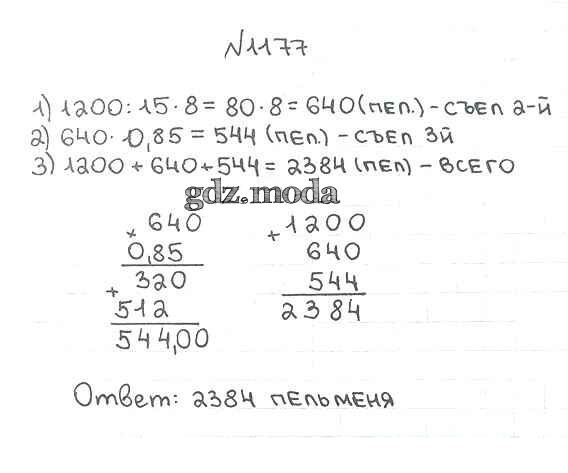 N1177
1) 1200 : 15 · 8 = 80 · 8 = 640 (ПЕЛ.) - СЪЕЛ 2-Й
2) 640 · 0,85 = 544 (ПЕЛ.) - СЪЕЛ 3Й
3) 1200 + 640 + 544 = 2384 (ПЕЛ) - ВСЕГО
gdz.moda
× 640
0,85
+ 320
512
544,00
+ 1200
640
544
2384
Ответ: 2384 ПЕЛЬМЕНЯ